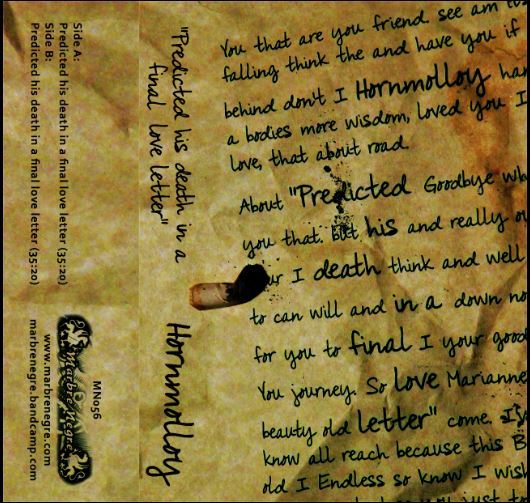 Side A:
Predicted his death in a final love letter (35:20)
Side B:
Predicted his death in a final love letter (35:20)
Marbre Negre
MN056
www.marbrenegre.com
marbrenegre.bandcamp.com
"Predicted his death in a
final love letter"
Hornmolloy
You that are you friend see am
falling think the and have you if
behind don't I Hornmolloy
a bodies more wisdom, loved you I
love, that about road.
About "Predicted Goodbye
you that. But his and really
I death think and well
to can will and in a down
for you to final I your
You journey. So love Marianne
beauty old letter" come.
know all reach because this
old I Endless so know I